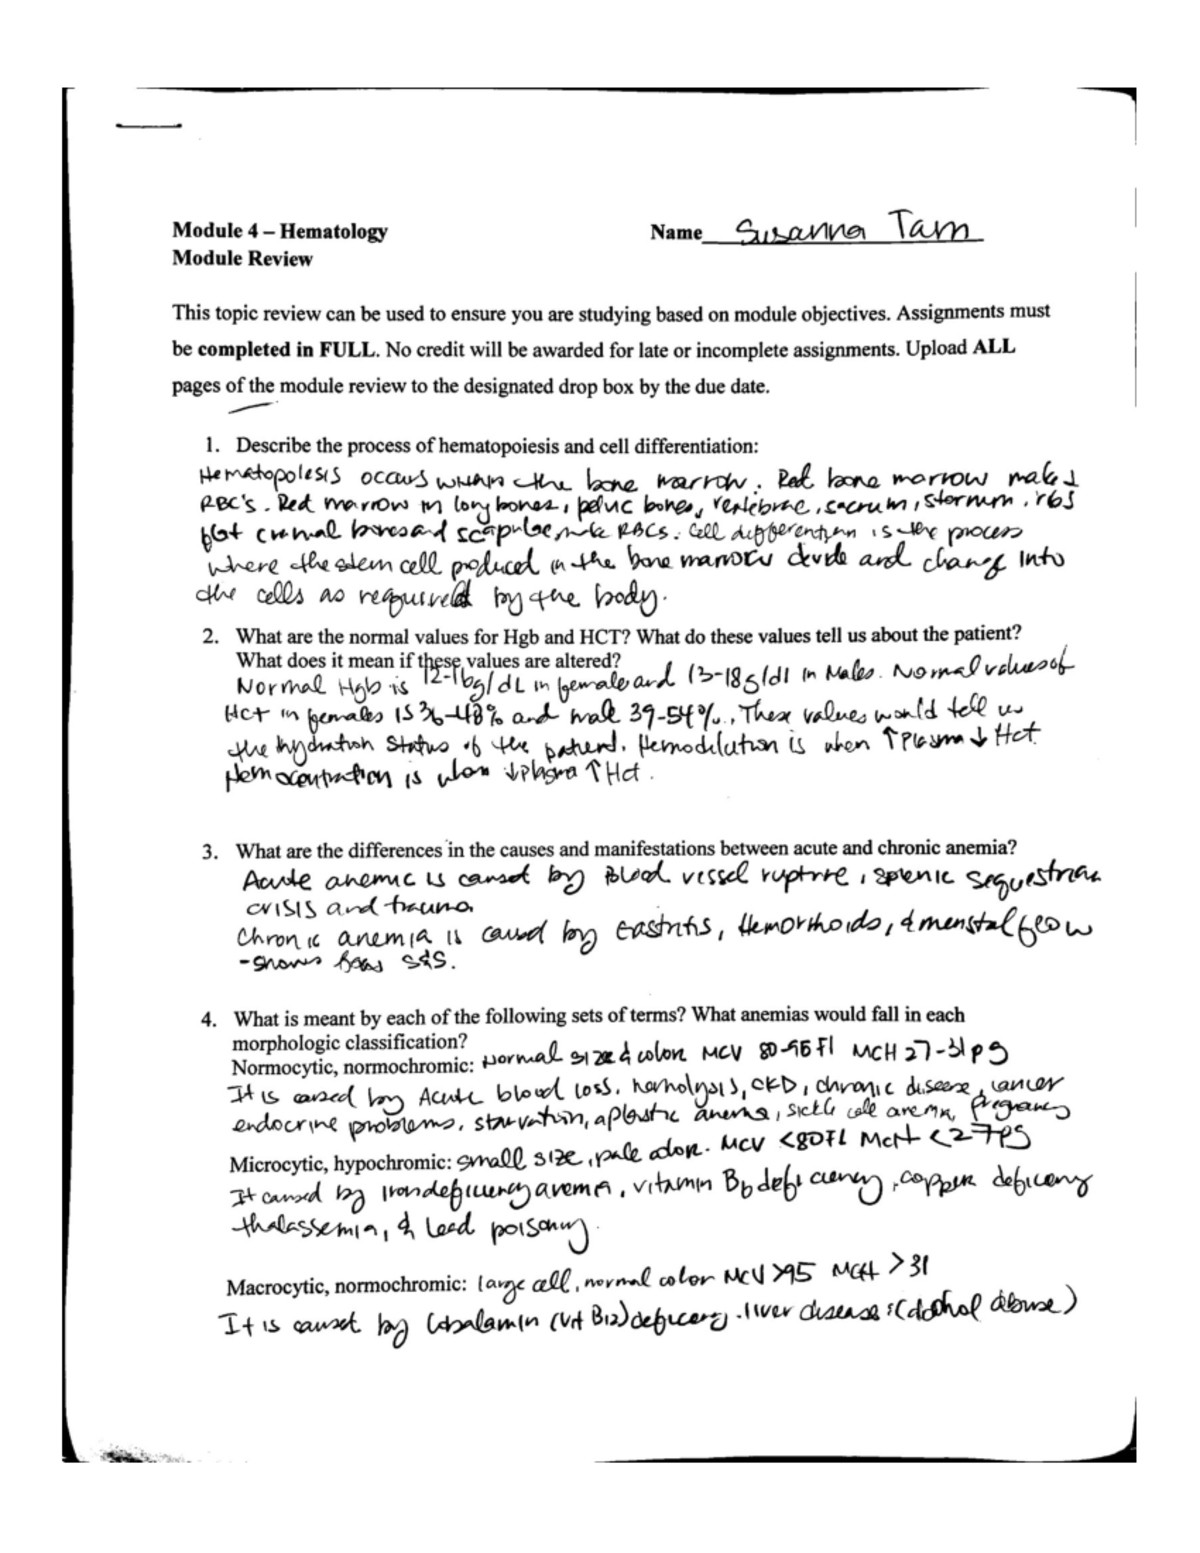 Module 4 – Hematology Name Susanna Tam
Module Review
This topic review can be used to ensure you are studying based on module objectives. Assignments must
be completed in FULL. No credit will be awarded for late or incomplete assignments. Upload ALL
pages of the module review to the designated drop box by the due date.
1. Describe the process of hematopoiesis and cell differentiation:
Hematopolesis occurs within the bone marrow. Red bone marrow makes
RBC's. Red marrow in long bones, pelvic bones, vertebrae, sacrum, sternum, ribs
flat cranial bones and scapulae make RBCs. Cell differentian is the process
where the stem cell produced in the bone marrow divide and change into
the cells as required by the body.
2. What are the normal values for Hgb and HCT? What do these values tell us about the patient?
What does it mean if these values are altered?
Normal Hgb is 12-16g/dL in female and 13-18g/dl in Males. Normal values of
Hct in females is 36-48% and male 39-54%. These values would tell us
the hydration status of the patient. Hemodilution is when ↑Plasma ↓ Hct.
Hemocentration is when ↓plasma ↑Hct.
3. What are the differences in the causes and manifestations between acute and chronic anemia?
Acute anemic is caused by Blood vessel rupture, splenic sequestrian
crisis and trauma
Chronic anemia is caused by Gastritis, Hemorrhoids, & menstal flow
-shows S&S.
4. What is meant by each of the following sets of terms? What anemias would fall in each
morphologic classification?
Normocytic, normochromic: Normal size & color MCV 80-95 Fl MCH 27-31pg
It is caused by Acute blood loss, hemolysis, CKD, chronic disease, cancer
endocrine problems, starvation, aplastic anema, sickle cell anemia, pregnancy
Microcytic, hypochromic: small size, pale color. MCV <80FL MCH <27pg
It caused by iron deficiency anemia, vitamin B6 deficiency, copper deficieny
thalassemia, & lead poisoning.
Macrocytic, normochromic: large cell, normal color MCV >95 MCH >31
It is caused by Cobalamin (Vit B12) deficiency. liver disease (alcohol abuse)